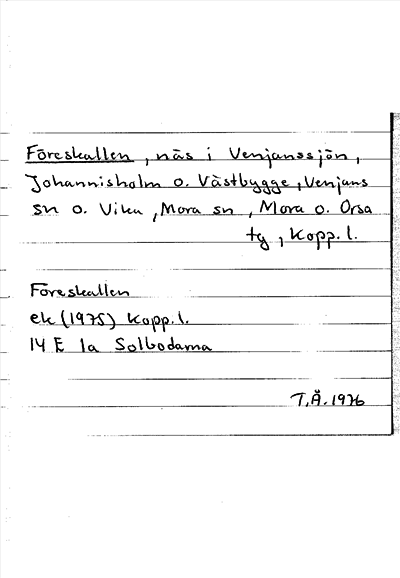 Föreskallen, näs i Venjanssjön,
Johannisholm o. Västbygge, Venjans
sn o. Vika, Mora sn, Mora o. Orsa
tg, Kopp. l.
Föreskallen
ek (1975) Kopp. l.
14 E 1a Solbodarna
T.Ä. 1976